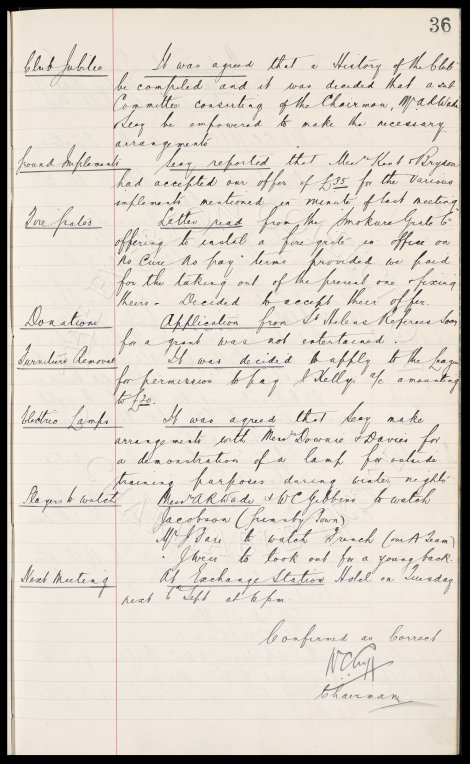 36
Club Jubilee It was agreed that a History of the Club
be compiled and it was decided that a sub
Committee consisting of the Chairman, Mr. A.R. Wade
Secy be empowered to make the necessary
arrangements
Ground Implements Secy reported that Messrs Kent & Brydon
had accepted our offer of £35 for the various
implements mentioned in minute of last meeting
Fire Grates Letter read from the Smokure Grate Co
offering to instal a fire grate in office on
No Cure No pay terms provided we paid
for the taking out of the present one & fixing
theirs - Decided to accept their offer.
Donations Application from St Helens Referees Socy
for a grant was not entertained.
Furniture Removal It was decided to apply to the League
for permission to pay Kelly's a/c amounting
to £20.
Electric Lamps It was agreed that Secy make
arrangements with Messrs Downie & Davies for
a demonstration of a lamp for outside
training purposes during winter nights
Players to watch Messrs A R Wade & W C Gibbins to watch
Jacobson (Grimsby Town)
Mr J Fare to watch French (our A Team)
J Weir to look out for a young back.
Next Meeting At Exchange Station Hotel on Tuesday
next 6th Sept at 6 pm
Confirmed as Correct
W C Cuff
Chairman